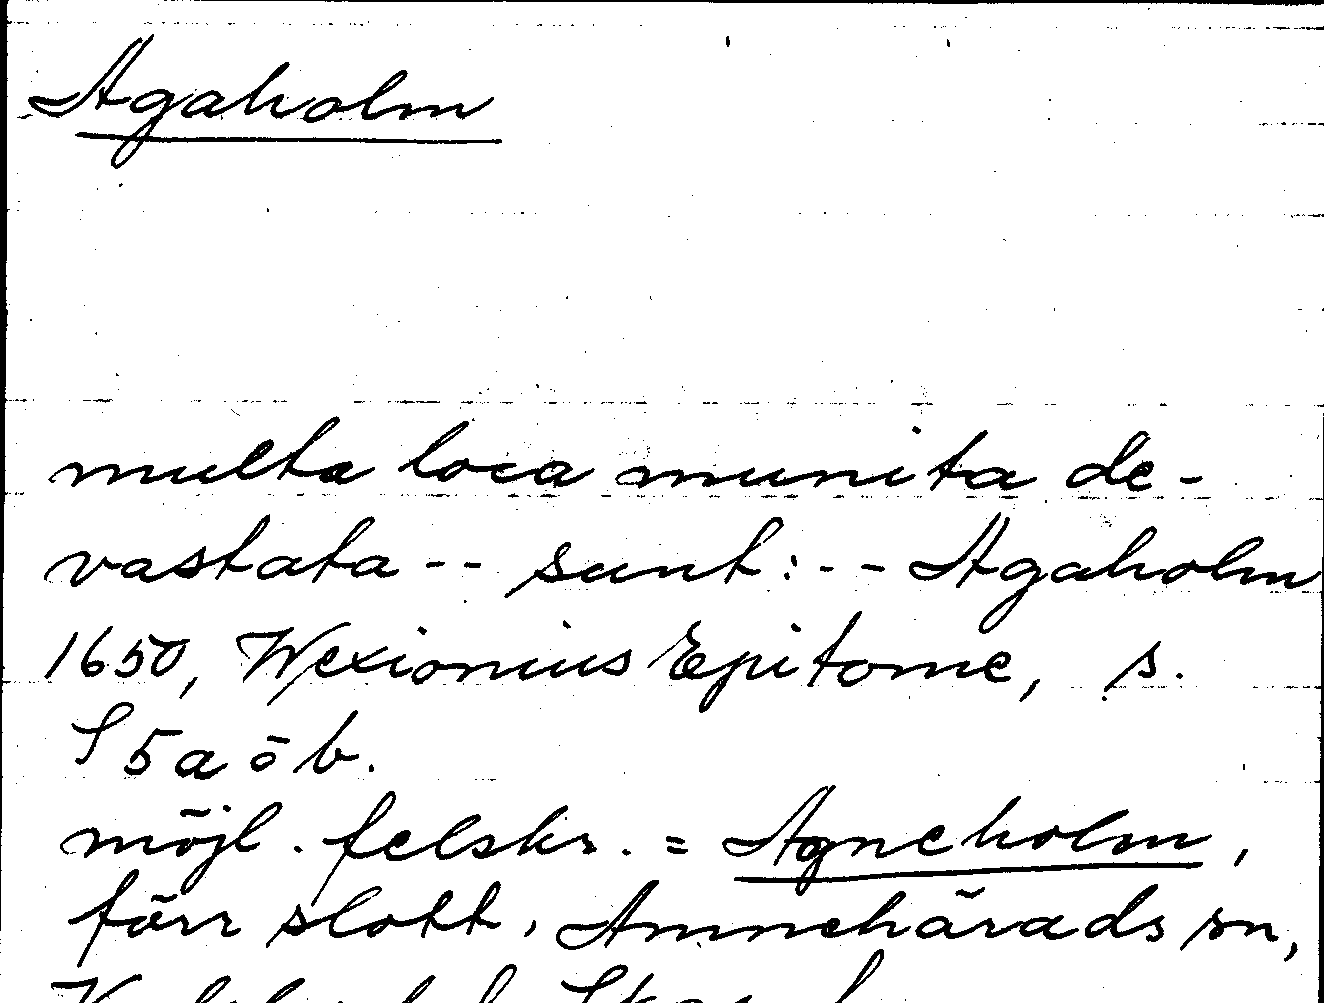 Agaholm
multa loca munita de-
vastata -- sunt: -- Agaholm
1650, Wexionius Epitome, s.
S 5 a o b.
möjl. felskr. = Agneholm,
förr slott, Amnehärads sn,